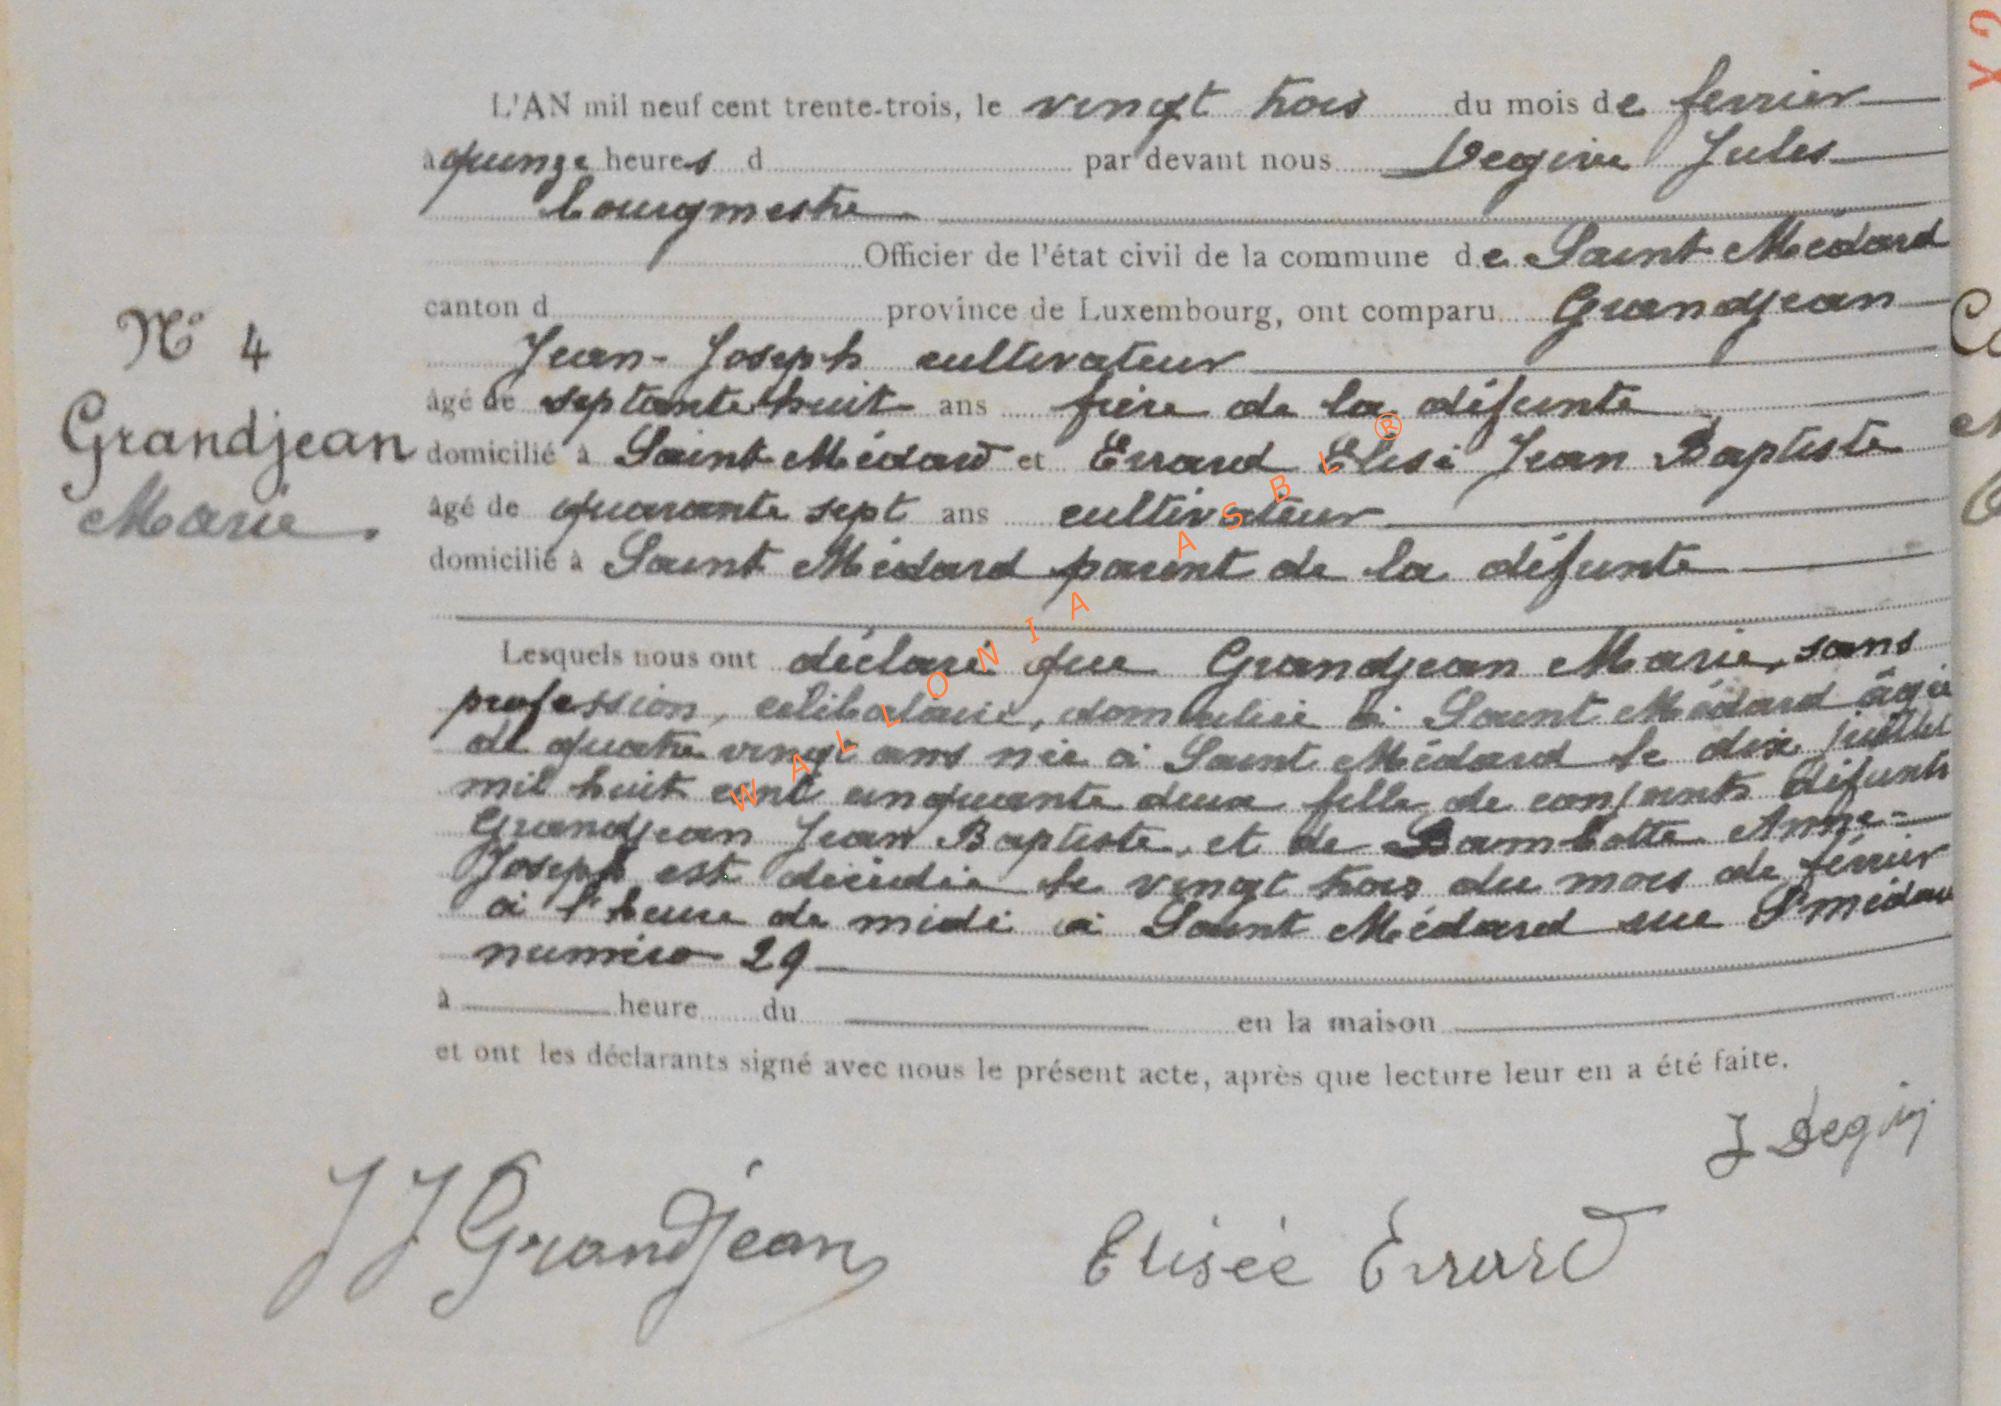 L'AN mil neuf cent trente-trois, le vingt trois du mois de fevrier
à quinze heures d par devant nous Degive Jules
bourgmestre
Officier de l'état civil de la commune de Saint Médard
canton d province de Luxembourg, ont comparu Grandjean
Jean-Joseph cultivateur
âgé de septante huit ans frère de la défunte
domicilié à Saint Médard et Errard Elisé Jean Baptiste
âgé de quarante sept ans cultivateur
domicilié à Saint Médard parent de la défunte
N° 4
Grandjean
Marie.
Lesquels nous ont déclaré que Grandjean Marie, sans
profession, célibataire, domiciliée à Saint Médard âgée
de quatre vingt ans née à Saint Médard le dix juillet
mil huit cent cinquante deux fille de conjoints défunts
Grandjean Jean Baptiste, et de Bamlotte Anne-
Joseph est décédée le vingt trois du mois de février
à l'heure de midi à Saint Médard rue St médard
numéro 29
à heure du en la maison
et ont les déclarants signé avec nous le présent acte, après que lecture leur en a été faite.
J Degive
J J Grandjean Elisée Errard
WALLONIA ASBL ®